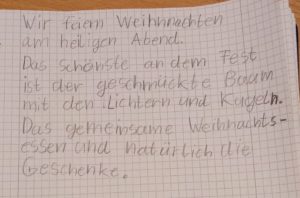 Wir feiern Weihnachten
am heiligen Abend.
Das schönste an dem Fest
ist der geschmückte Baum
mit den Lichtern und Kugeln.
Das gemeinsame Weihnachts-
essen und natürlich die
Geschenke.